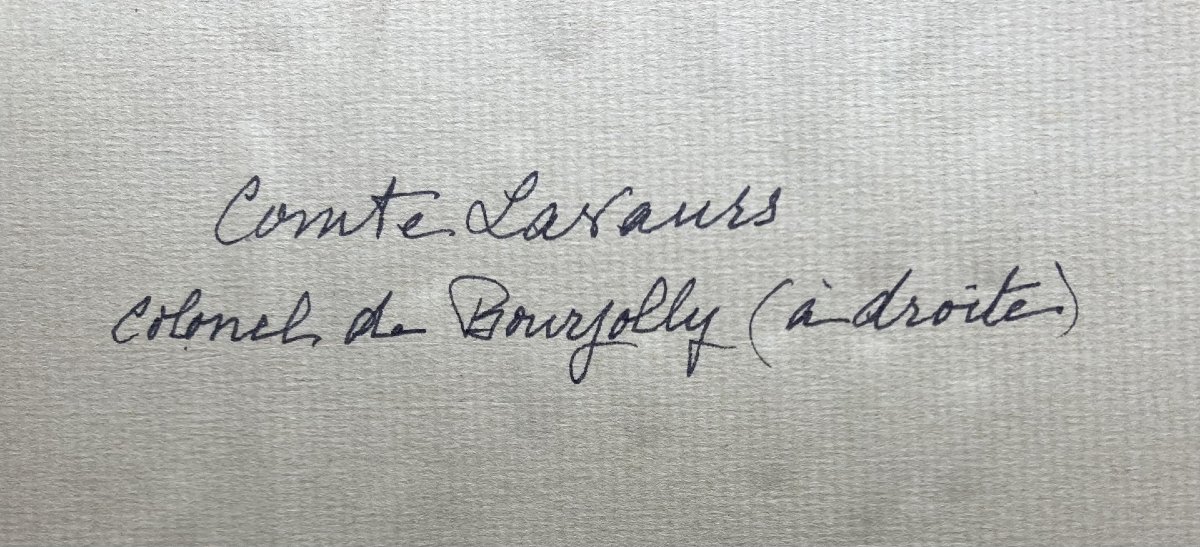 Comte Lavaurs
Colonel de Bourjolly (à droite)